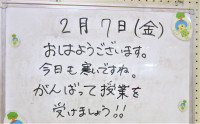 2月7日(金)
おはようございます。
今日も寒いですね。
がんばって授業を
受けましょう!!